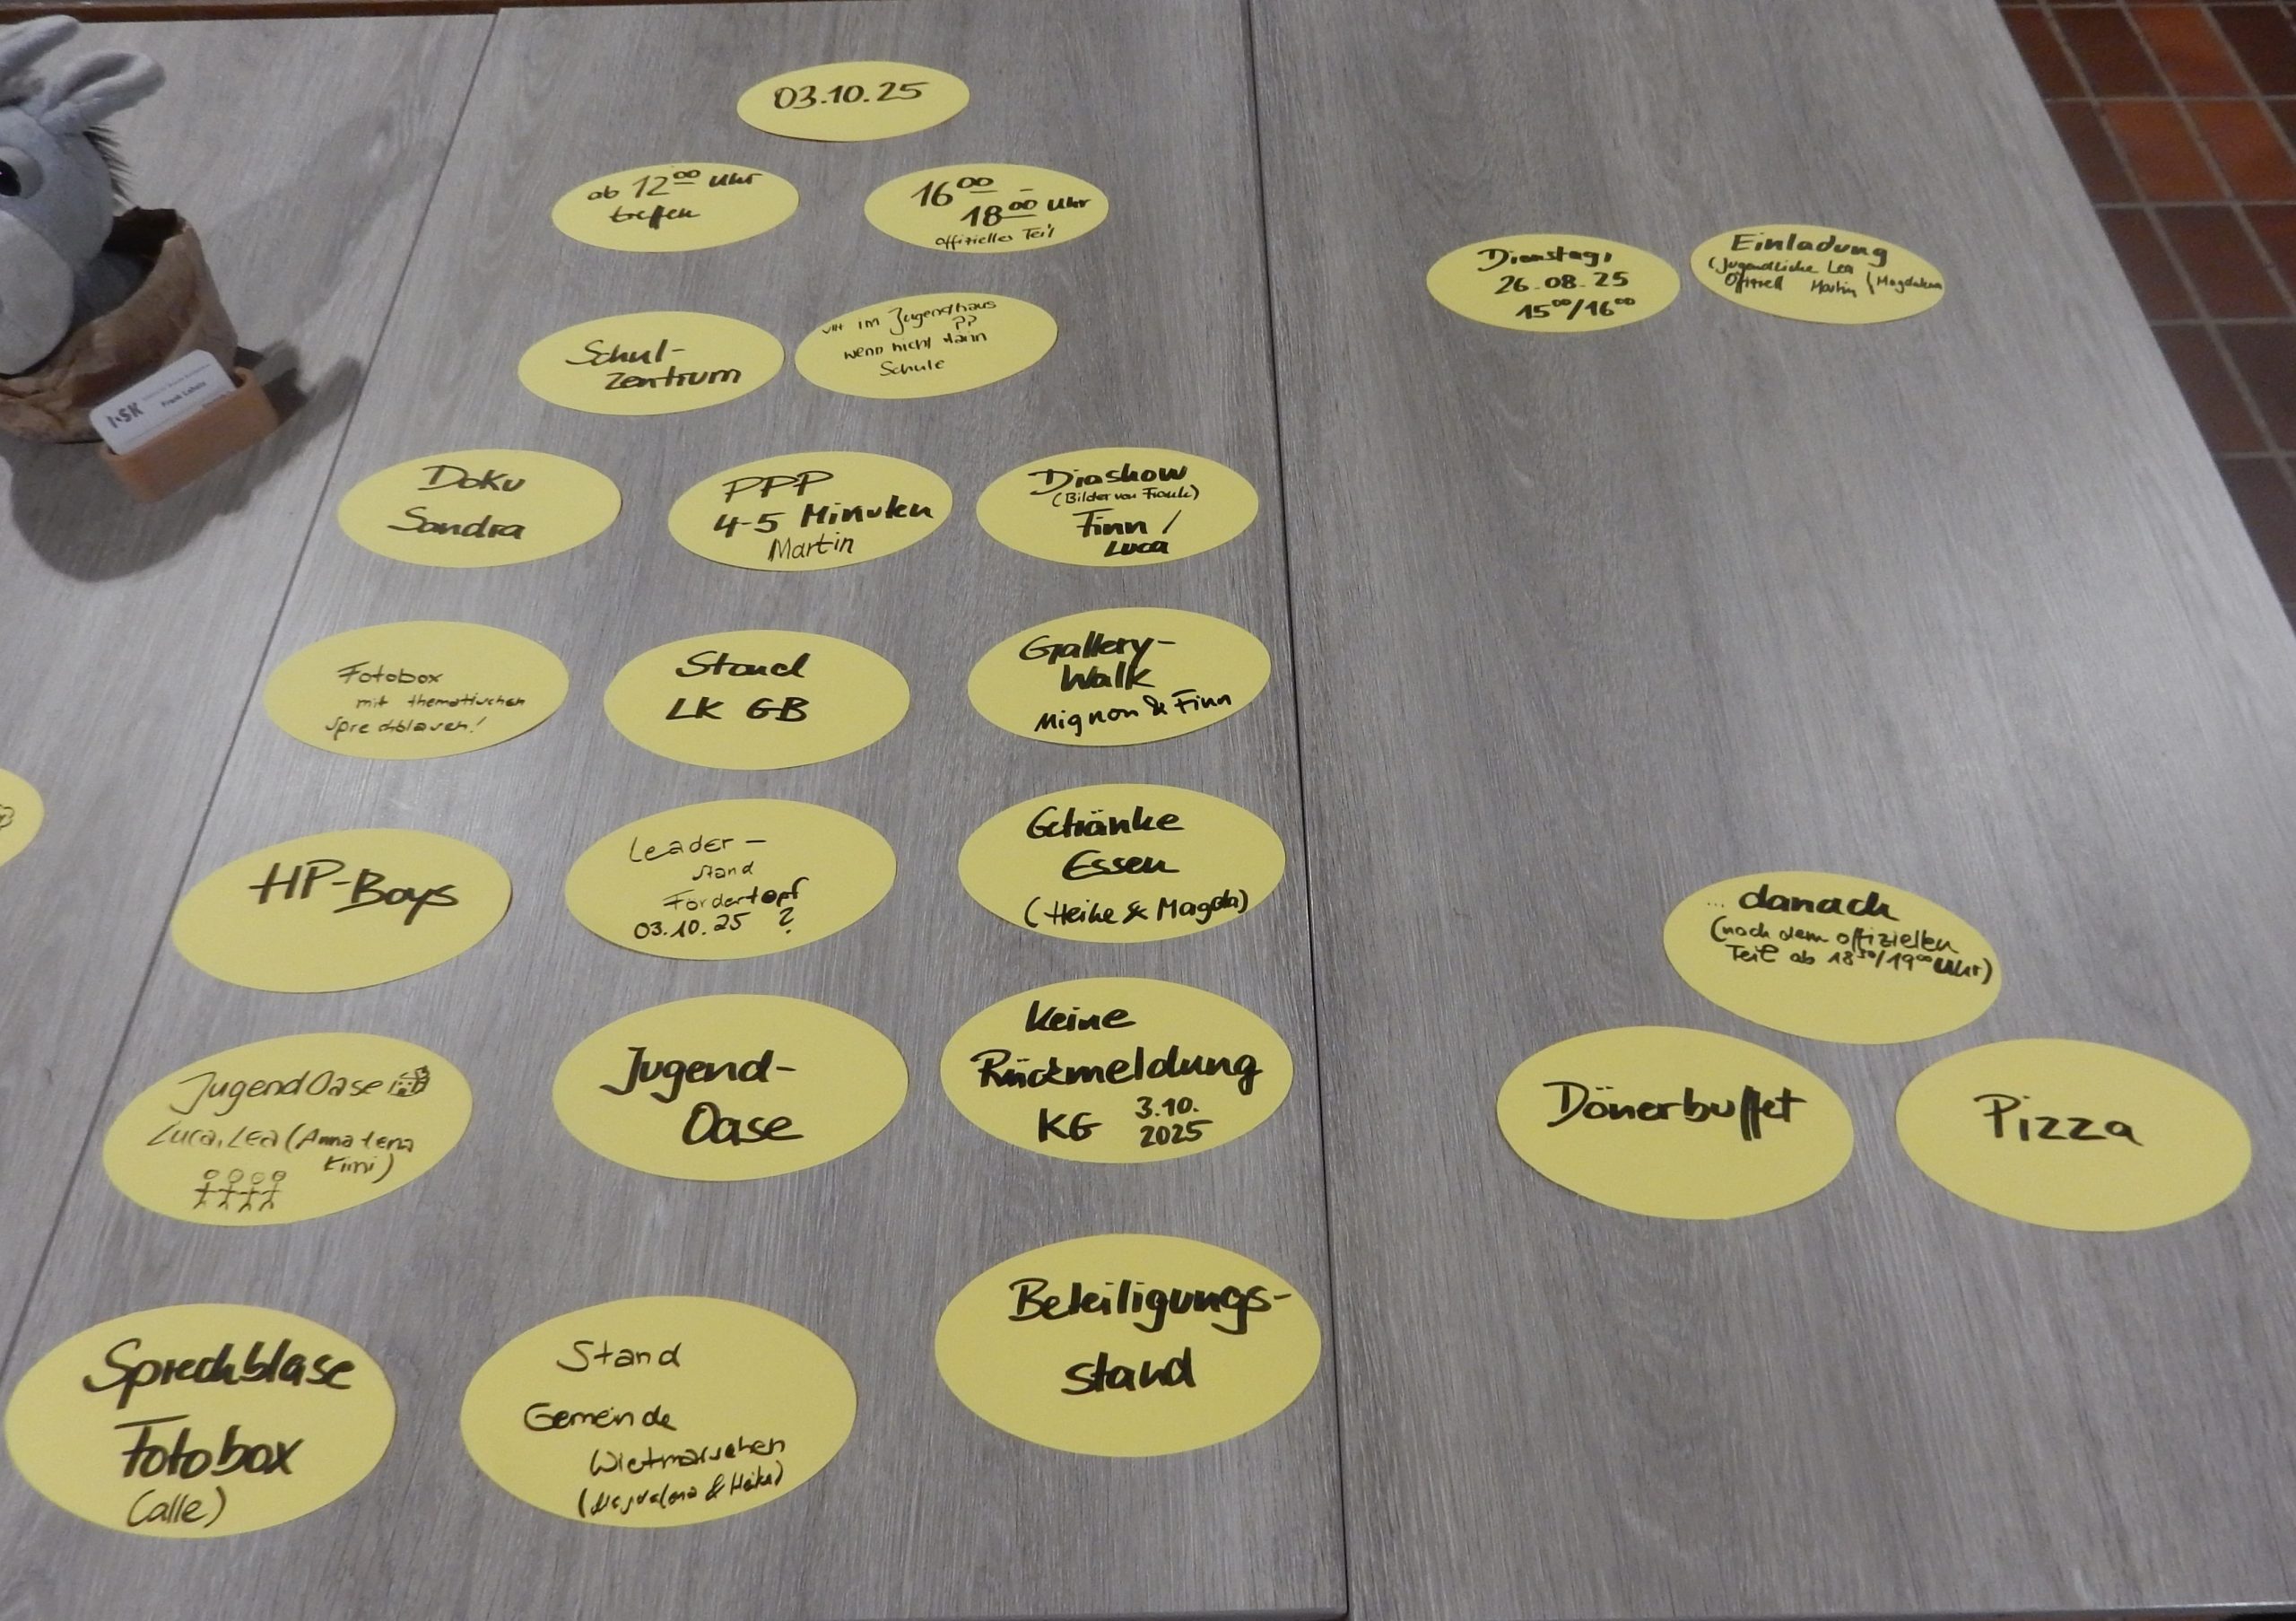 03.10.25
ab 12⁰⁰ Uhr
treffen
16⁰⁰ –
18⁰⁰ Uhr
offizieller Teil
Dienstag,
26.08.25
15⁰⁰/16⁰⁰
Einladung
(Jugendliche Lea
Offiziell Martin / Magdalena
Schul-
zentrum
im Jugendhaus
??
wenn nicht dann
Schule
Doku
Sandra
PPP
4-5 Minuten
Martin
Diashow
(Bilder von Frank)
Finn /
Luca
Fotobox
mit thematischen
Sprechblasen!
Stand
LK GB
Gallery-
Walk
Mignon & Finn
HP-Boys
Leader-
stand
Fördertopf
03.10.25 ?
Getränke
Essen
(Heike & Magda)
... danach
(nach dem offiziellen
Teil ab 18³⁰/19⁰⁰ Uhr)
JugendOase
Luca, Lea (Anna Lena
Kimi)
Jugend-
Oase
Keine
Rückmeldung
KG 3.10.
2025
Dönerbuffet
Pizza
Sprechblase
Fotobox
(alle)
Stand
Gemeinde
Wietmarschen
(Magdalena & Heike)
Beteiligungs-
stand